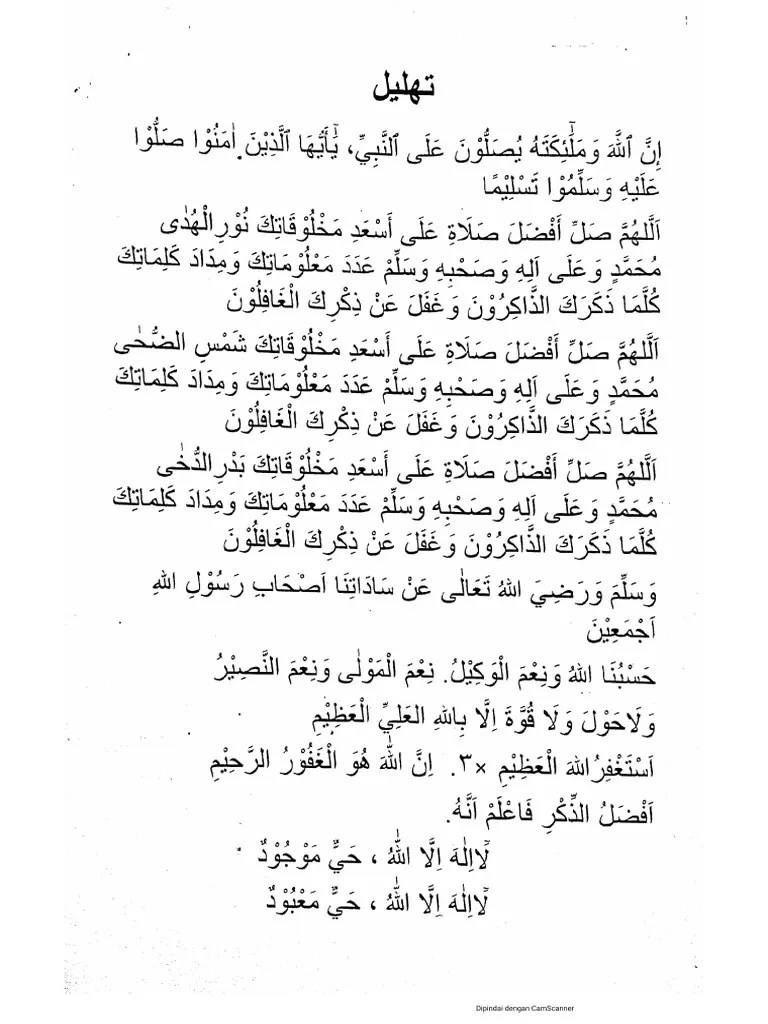 تهليل
إِنَّ ٱللَّهَ وَمَلَٰٓئِكَتَهُ يُصَلُّوْنَ عَلَى ٱلنَّبِيِّ، يَٰٓأَيُّهَا ٱلَّذِيْنَ اٰمَنُوْا صَلُّوْا
عَلَيْهِ وَسَلِّمُوْا تَسْلِيْمًا
اَللّٰهُمَّ صَلِّ أَفْضَلَ صَلَاةِ عَلَى أَسْعَدِ مَخْلُوْقَاتِكَ نُوْرِ الْهُدٰى
مُحَمَّدٍ وَعَلَى اَلِهِ وَصَحْبِهِ وَسَلِّمْ عَدَدَ مَعْلُوْمَاتِكَ وَمِدَادَ كَلِمَاتِكَ
كُلَّمَا ذَكَرَكَ الذَّاكِرُوْنَ وَغَفَلَ عَنْ ذِكْرِكَ الْغَافِلُوْنَ
اَللّٰهُمَّ صَلِّ أَفْضَلَ صَلَاةِ عَلَى أَسْعَدِ مَخْلُوْقَاتِكَ شَمْسِ الضُّحٰى
مُحَمَّدٍ وَعَلَى اَلِهِ وَصَحْبِهِ وَسَلِّمْ عَدَدَ مَعْلُوْمَاتِكَ وَمِدَادَ كَلِمَاتِكَ
كُلَّمَا ذَكَرَكَ الذَّاكِرُوْنَ وَغَفَلَ عَنْ ذِكْرِكَ الْغَافِلُوْنَ
اَللّٰهُمَّ صَلِّ أَفْضَلَ صَلَاةِ عَلَى أَسْعَدِ مَخْلُوْقَاتِكَ بَدْرِ الدُّخٰى
مُحَمَّدٍ وَعَلَى اَلِهِ وَصَحْبِهِ وَسَلِّمْ عَدَدَ مَعْلُوْمَاتِكَ وَمِدَادَ كَلِمَاتِكَ
كُلَّمَا ذَكَرَكَ الذَّاكِرُوْنَ وَغَفَلَ عَنْ ذِكْرِكَ الْغَافِلُوْنَ
وَسَلِّمَ وَرَضِيَ اللهُ تَعَالٰى عَنْ سَادَاتِنَا اَصْحَابِ رَسُوْلِ اللهِ
اَجْمَعِيْنَ
حَسْبُنَا اللهُ وَنِعْمَ الْوَكِيْلُ. نِعْمَ الْمَوْلٰى وَنِعْمَ النَّصِيْرُ
وَلَاحَوْلَ وَلَا قُوَّةَ اِلَّا بِاللهِ العَلِيِّ الْعَظِيْمِ
اَسْتَغْفِرُ اللهَ الْعَظِيْمِ ×٣. اِنَّ اللهَ هُوَ الْغَفُوْرُ الرَّحِيْمِ
اَفْضَلُ الذِّكْرِ فَاعْلَمْ اَنَّهُ.
لَآاِلٰهَ اِلَّا اللهُ ، حَيٌّ مَوْجُوْدٌ
لَآاِلٰهَ اِلَّا اللهُ ، حَيٌّ مَعْبُوْدٌ
Dipindai dengan CamScanner